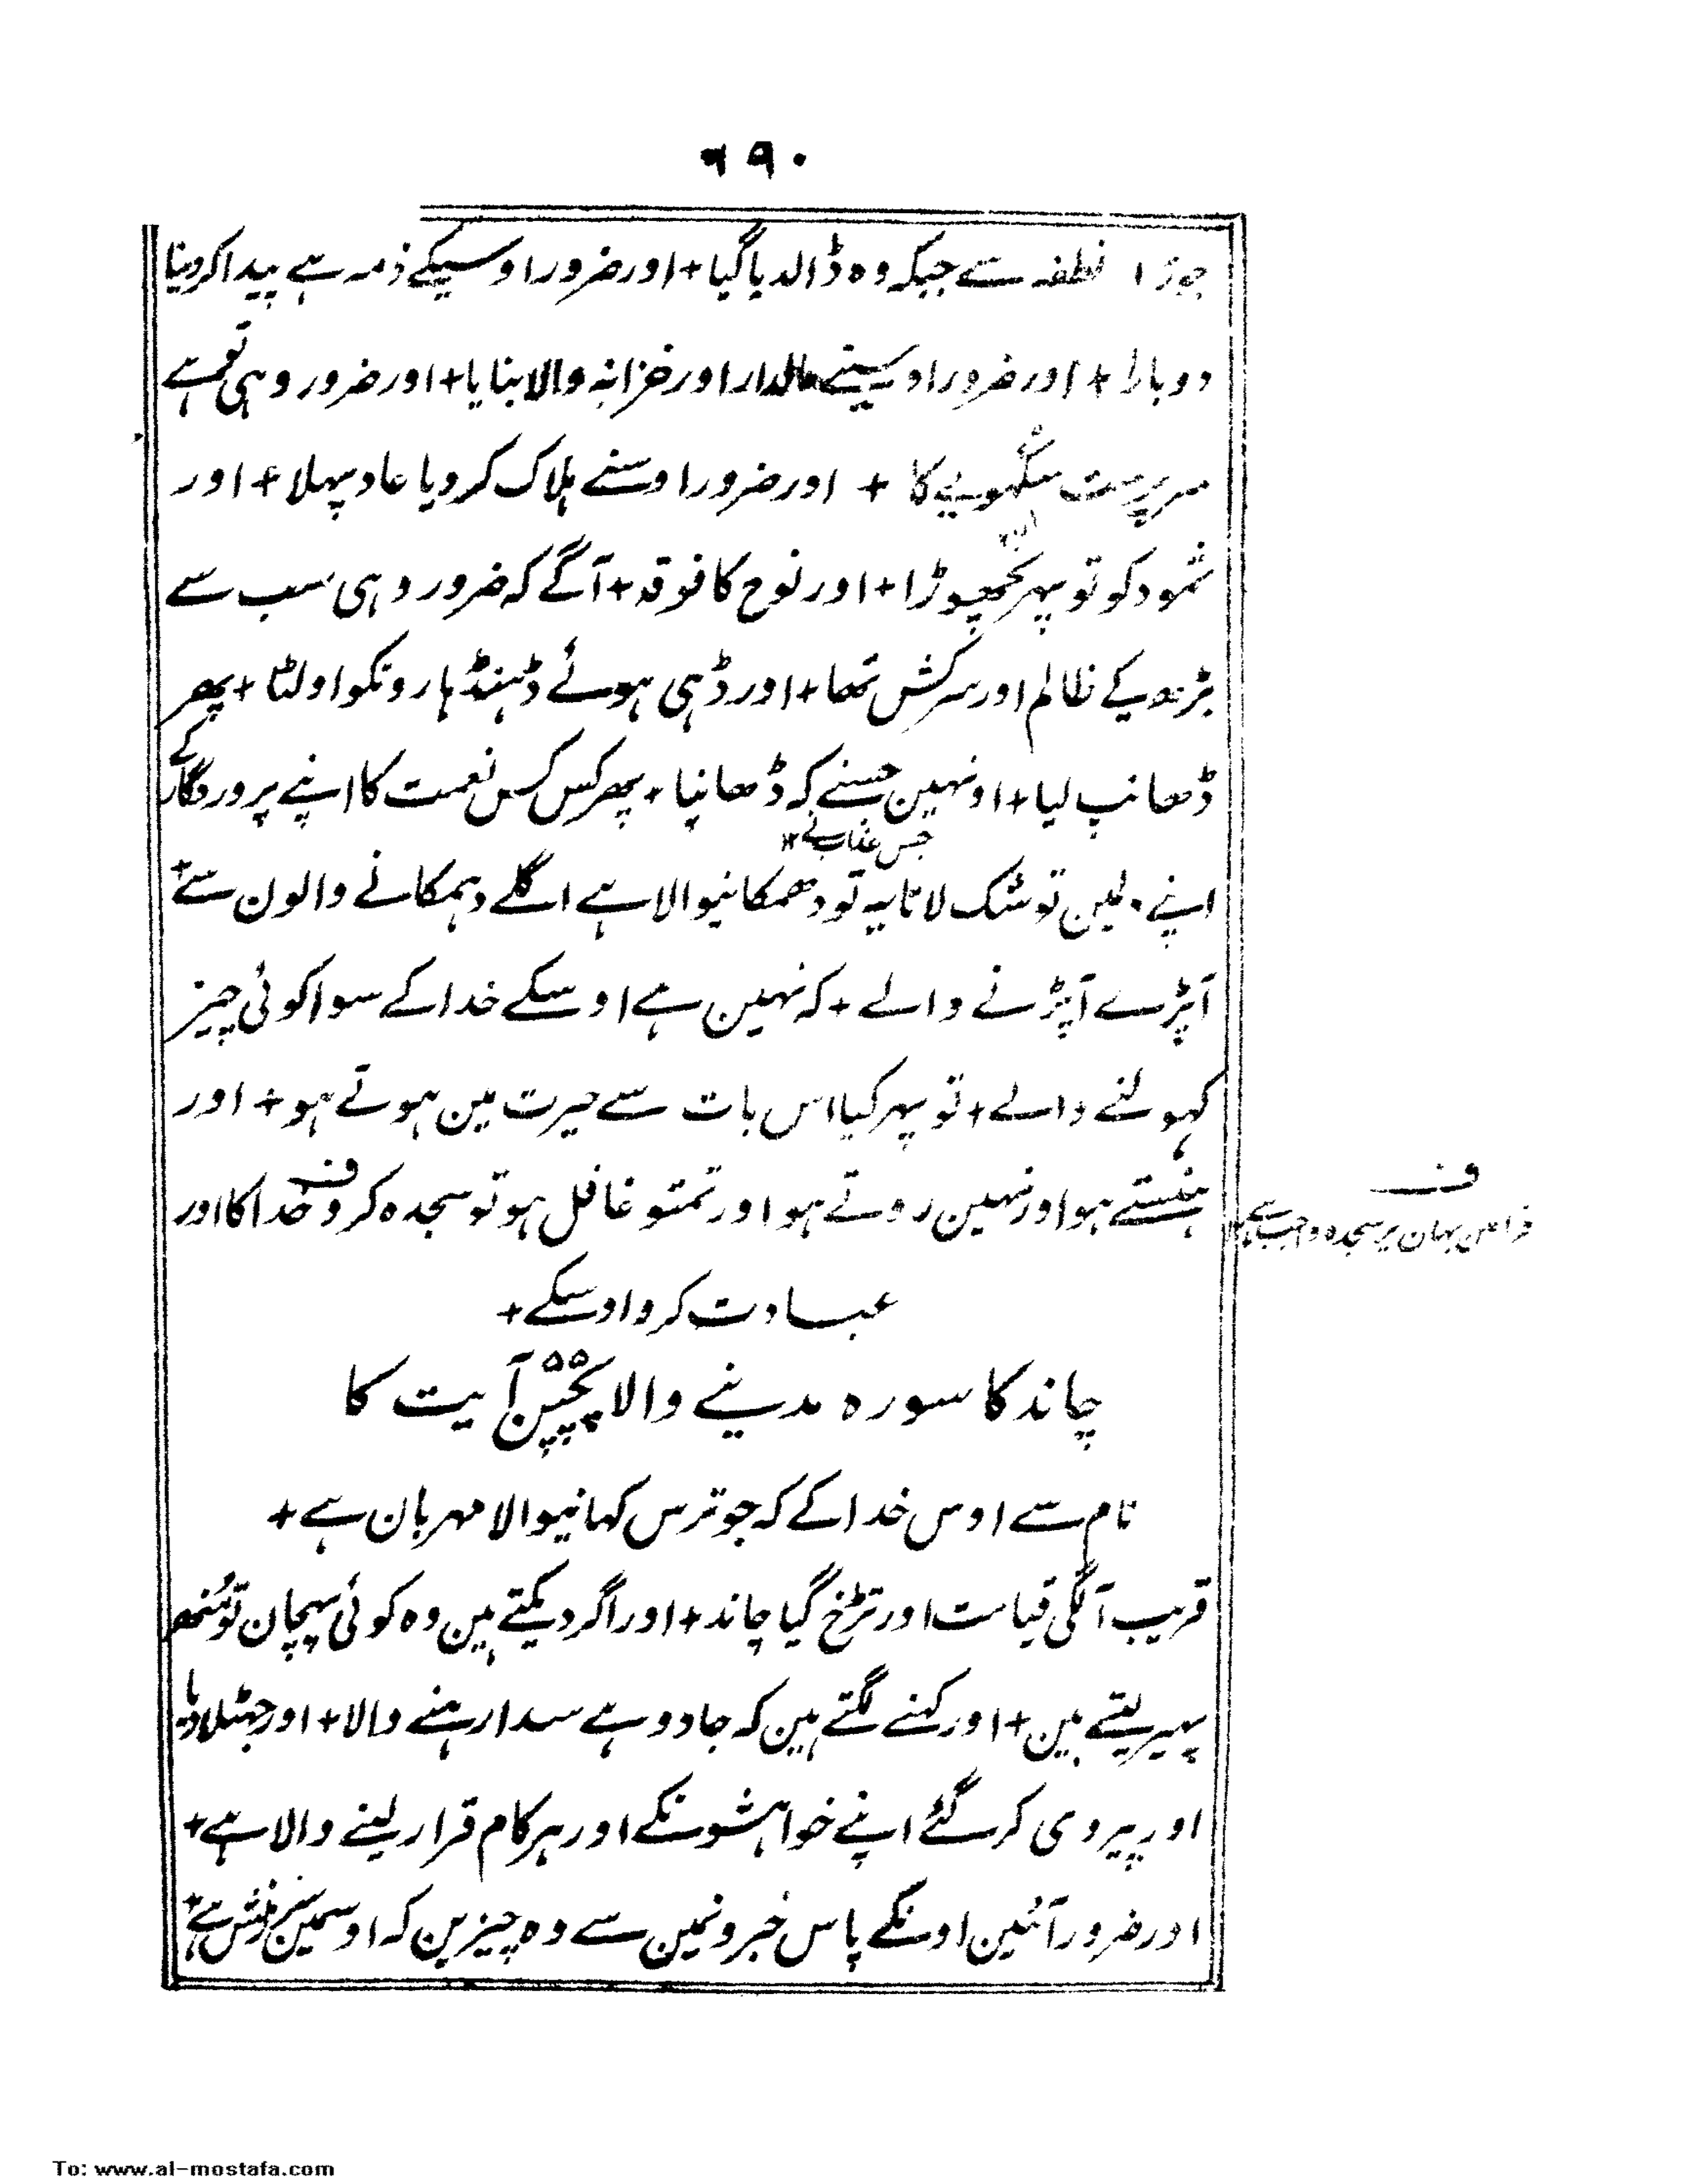 ٦٩٠
جوڑا نطفہ سے جبکہ وہ ڈالدیا گیا + اور ضرور اوسیکے ذمہ ہے پیدا کردینا
دوبارا + اور ضرور اوسینے مالدار اور خزانہ والا بنایا + اور ضرور وہی تو ہے
سرپرست کا + اور ضرور اوسنے ہلاک کردیا عاد پہلا + اور
ثمود کو تو پہر نچھوڑا + اور نوح کا فوقہ + آگے کہ ضرور وہی سب سے
بڑھکے ظالم اور سرکش تھا + اور ڈہی ہوئے ڈہنڈہارونکو اولٹا + پھر
ڈھانپ لیا + اونہین جسنے کہ ڈھانپا + پھر کس کس نعمت کا اپنے پروردگار کے
جس عذاب نے ١٢
اپنے مین تو شک لاتا یہ تو دھمکانیوالا ہے اگلے دہمکانے والون سے +
آپڑے آپڑنے والے + کہ نہین ہے اوسکے خدا کے سوا کوئی چیز
کہولنے والے + تو پہر کیا اس بات سے حیرت مین ہوتے ہو + اور
ہنستے ہو اور نہین روتے ہو اور تمتو غافل ہو تو سجدہ کرو ف خدا کا اور
ف
یہان پر سجدہ واجب ہے
عبادت کرو اوسکے +
چاند کا سورہ مدینے والا پچپن ٥٥ آیت کا
نام سے اوس خدا کے کہ جو ترس کہانیوالا مہربان ہے +
قریب آگئی قیامت اور تڑخ گیا چاند + اور اگر دیکتے ہین وہ کوئی پہچان تو منھ
پہیر لیتے ہین + اور کہنے لگتے ہین کہ جادو ہے سدا رہنے والا + اور جھٹلا دیا
اور پیروی کر گئے اپنے خواہشونکے اور ہر کام قرار لینے والا ہے +
اور ضرور آئین اونکے پاس خبرونمین سے وہ چیزین کہ اوسمین سرزنش ہے +
To: www.al-mostafa.com